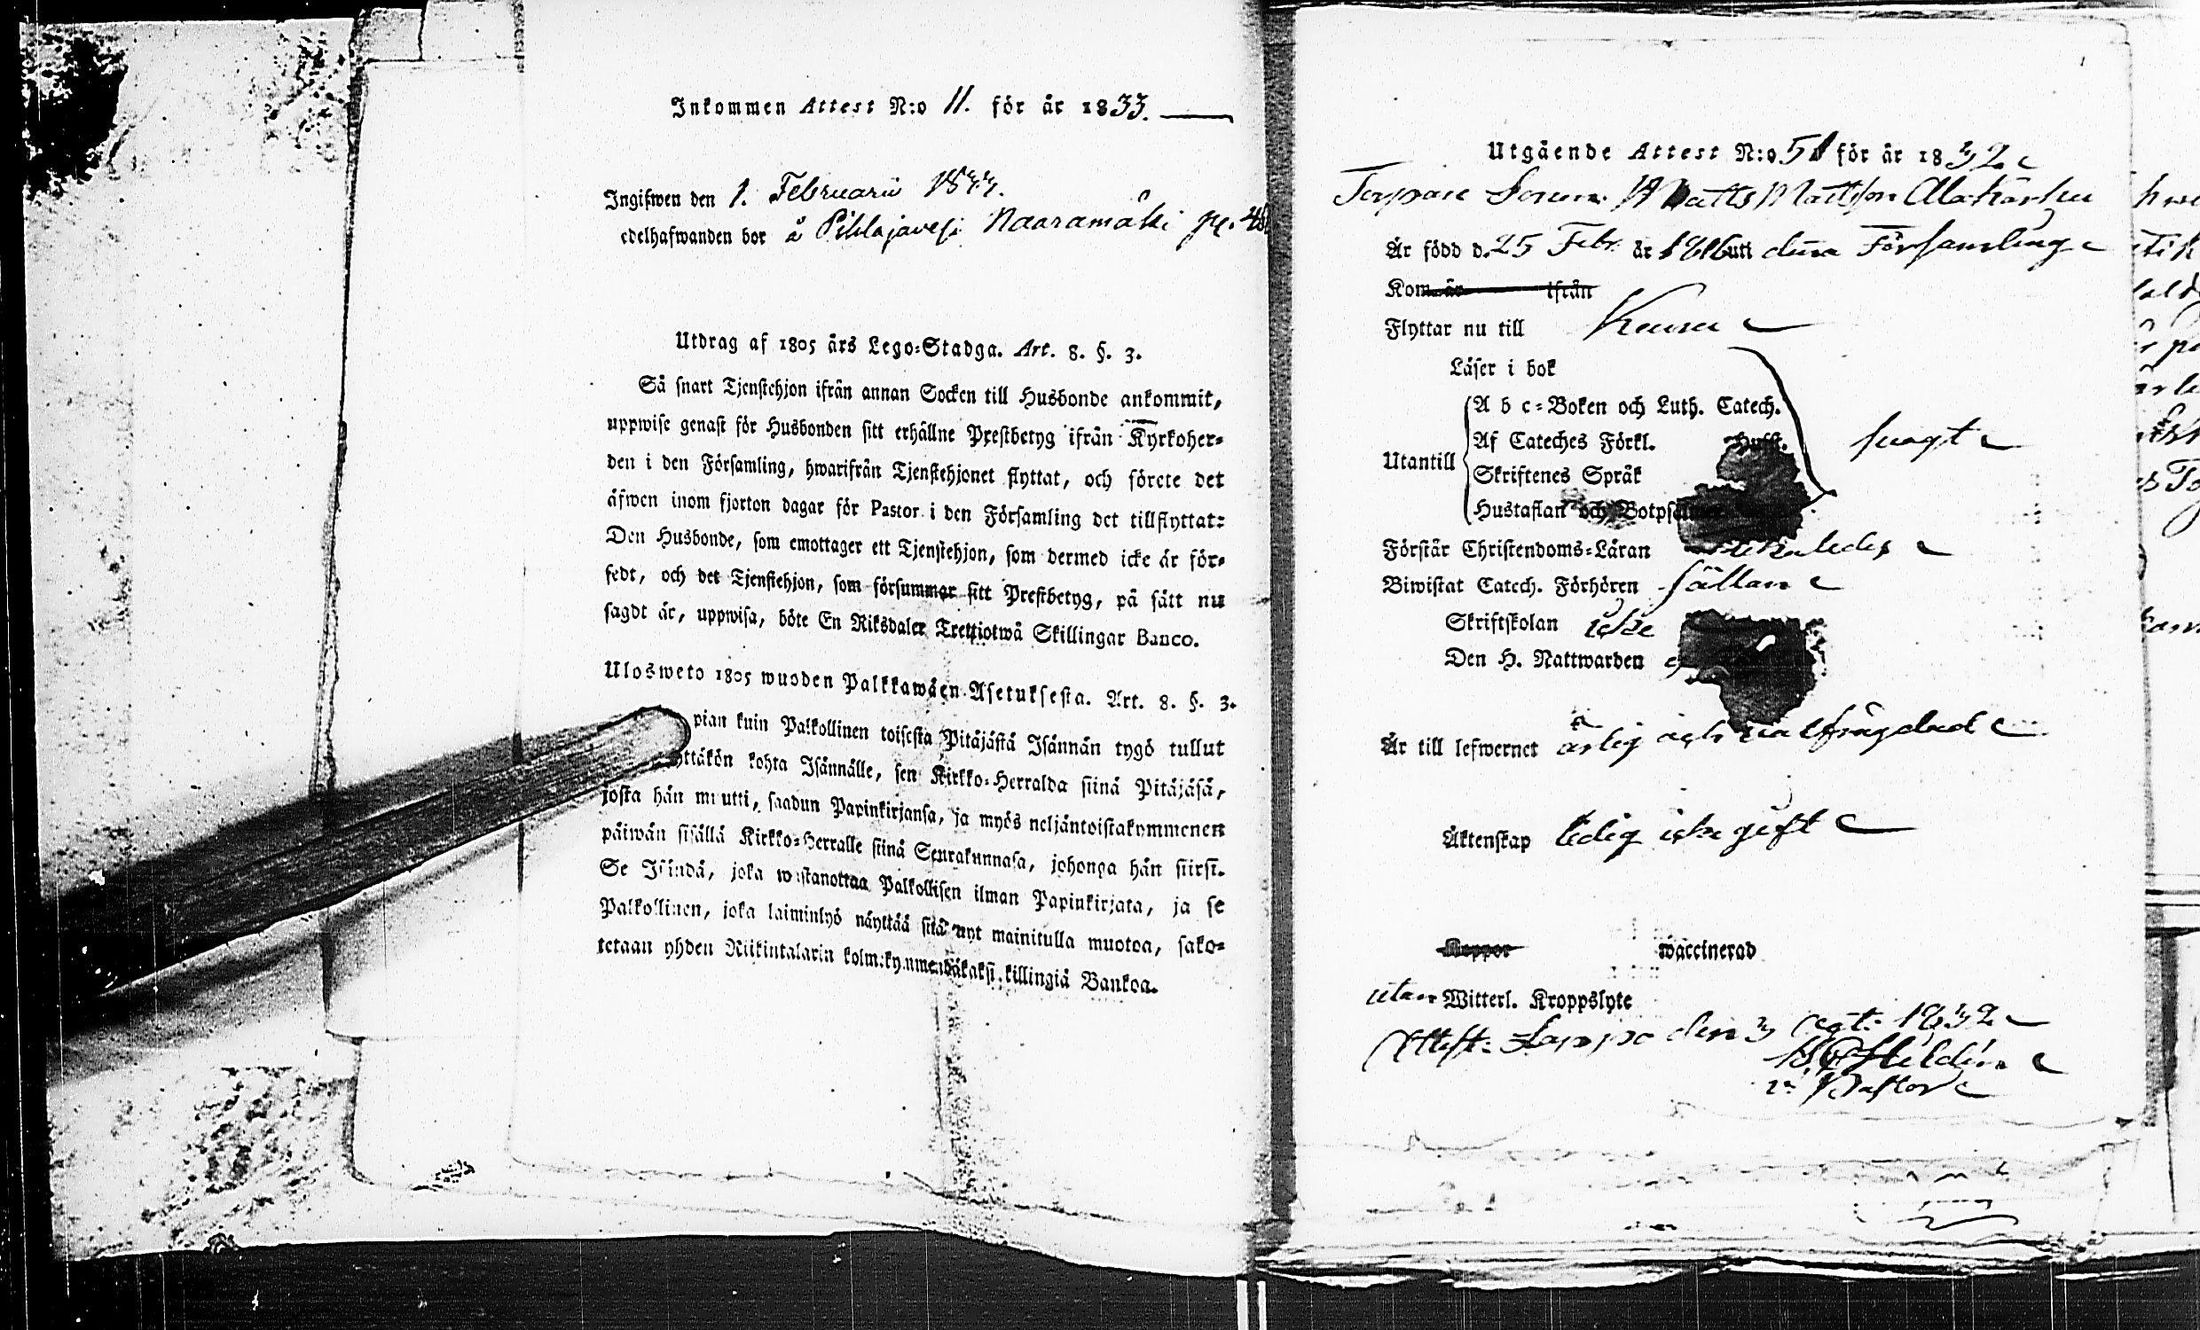 Inkommen Attest N:o 11. för år 1833.
Ingifwen den 1. Februarii 1833.
edelhafwanden bor å Pihlajavesi Naaramäki
Utdrag af 1805 års Lego-Stadga. Art. 8. §. 3.
Så snart Tjenstehjon ifrån annan Socken till Husbonde ankommit,
uppwise genast för Husbonden sitt erhållne Prestbetyg ifrån Kyrkoher-
den i den Församling, hwarifrån Tjenstehjonet flyttat, och förete det
äfwen inom fjorton dagar för Pastor i den Församling det tillflyttat:
Den Husbonde, som emottager ett Tjenstehjon, som dermed icke är för-
sedt, och det Tjenstehjon, som försummar sitt Prestbetyg, på sätt nu
sagdt är, uppwisa, böte En Riksdaler Trettiotwå Skillingar Banco.
Ulosweto 1805 wuoden Palkkawäen Asetuksesta. Art. 8. §. 3.
pian kuin Palkollinen toisesta Pitäjästä Isännän tygö tullut
yttäkön kohta Isännälle, sen Kirkko-Herralda siinä Pitäjäsä,
josta hän muutti, saadun Papinkirjansa, ja myös neljäntoistakymmenen
päiwän sisällä Kirkko-Herralle siinä Seurakunnasa, johonga hän siirsi.
Se Isändä, joka wastanottaa Palkollisen ilman Papinkirjata, ja se
Palkollinen, joka laiminlyö näyttää sitä nyt mainitulla muotoa, sako-
tetaan yhden Riikintalarin kolmekymmendäkaksi killingiä Bankoa.
Utgående Attest N:o 51 för år 1832
Torpare Sonen Matts Mattsson Alakärhu
Är född d. 25 Febr. år 1816 uti denna Församling
Kom år ifrån
Flyttar nu till Keuru
Läser i bok
A b c-Boken och Luth. Catech.
Af Cateches Förkl. Hufs.
Utantill Skriftenes Språk svagt
Hustaflan och Botps
Förstår Christendoms-Läran
Biwistat Catech. Förhören sällan
Skriftskolan icke
Den H. Nattwarden
Är till lefwernet ärlig och välfrägdad
Äktenskap ledig icke gift
Koppor waccinerad
utan Witterl. Kroppslyte
Attest: Lappo den 3 1832
Pastor